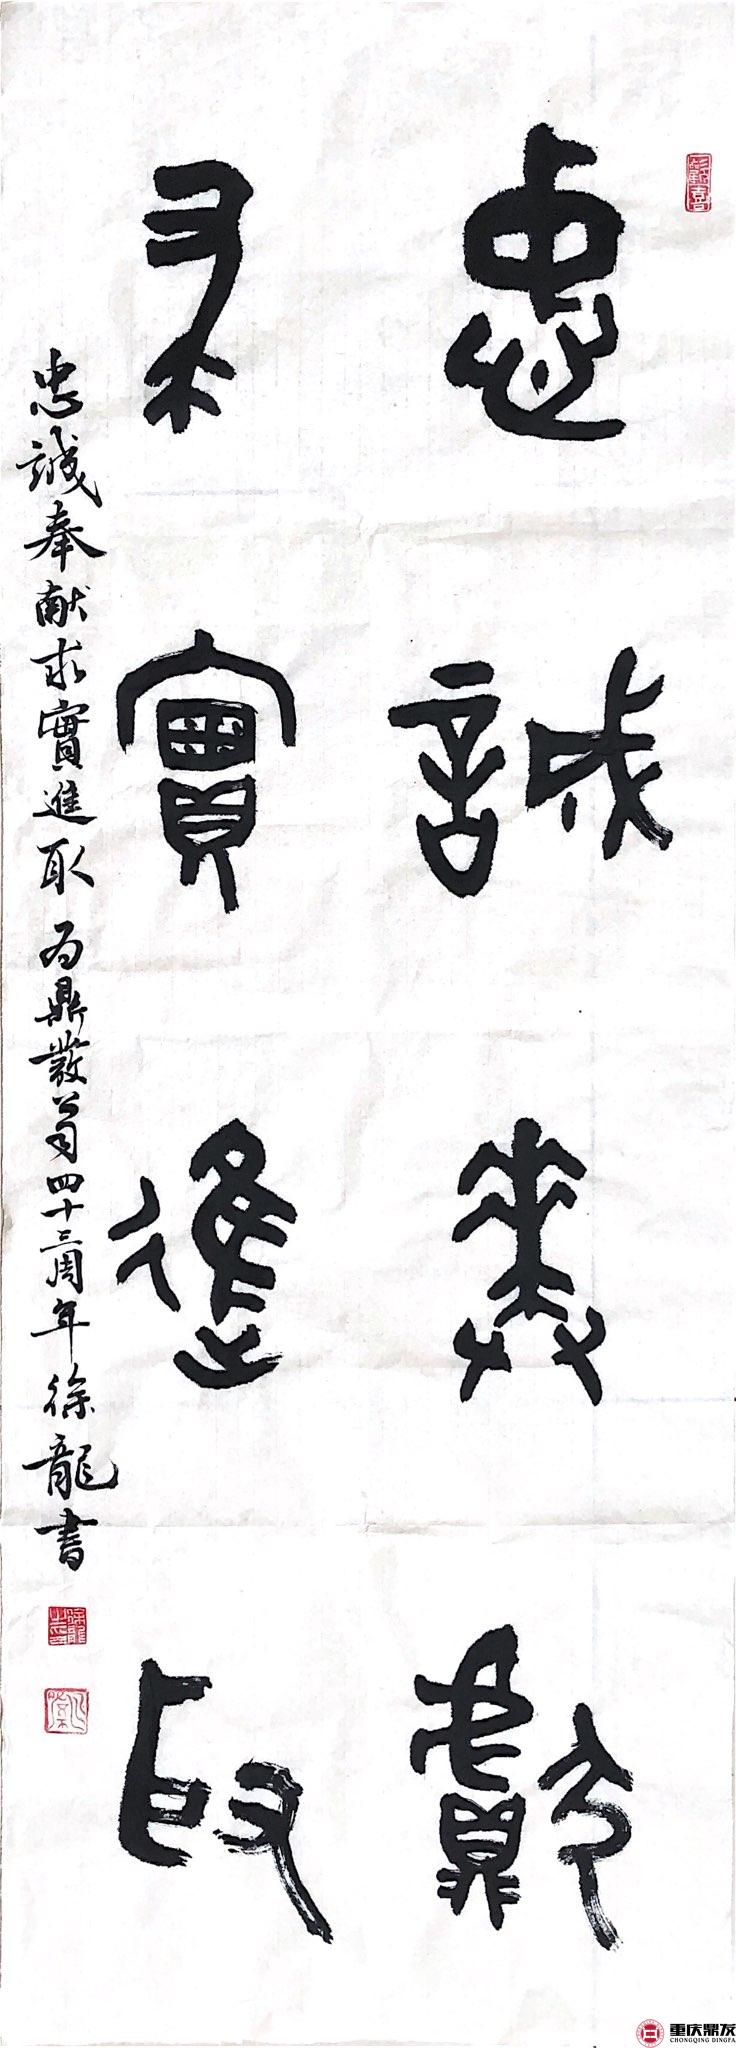 忠誠奉獻
求實進取
忠誠奉献求實進取 為鼎發公司四十三周年 徐龍書
重庆鼎发
CHONGQING DINGFA